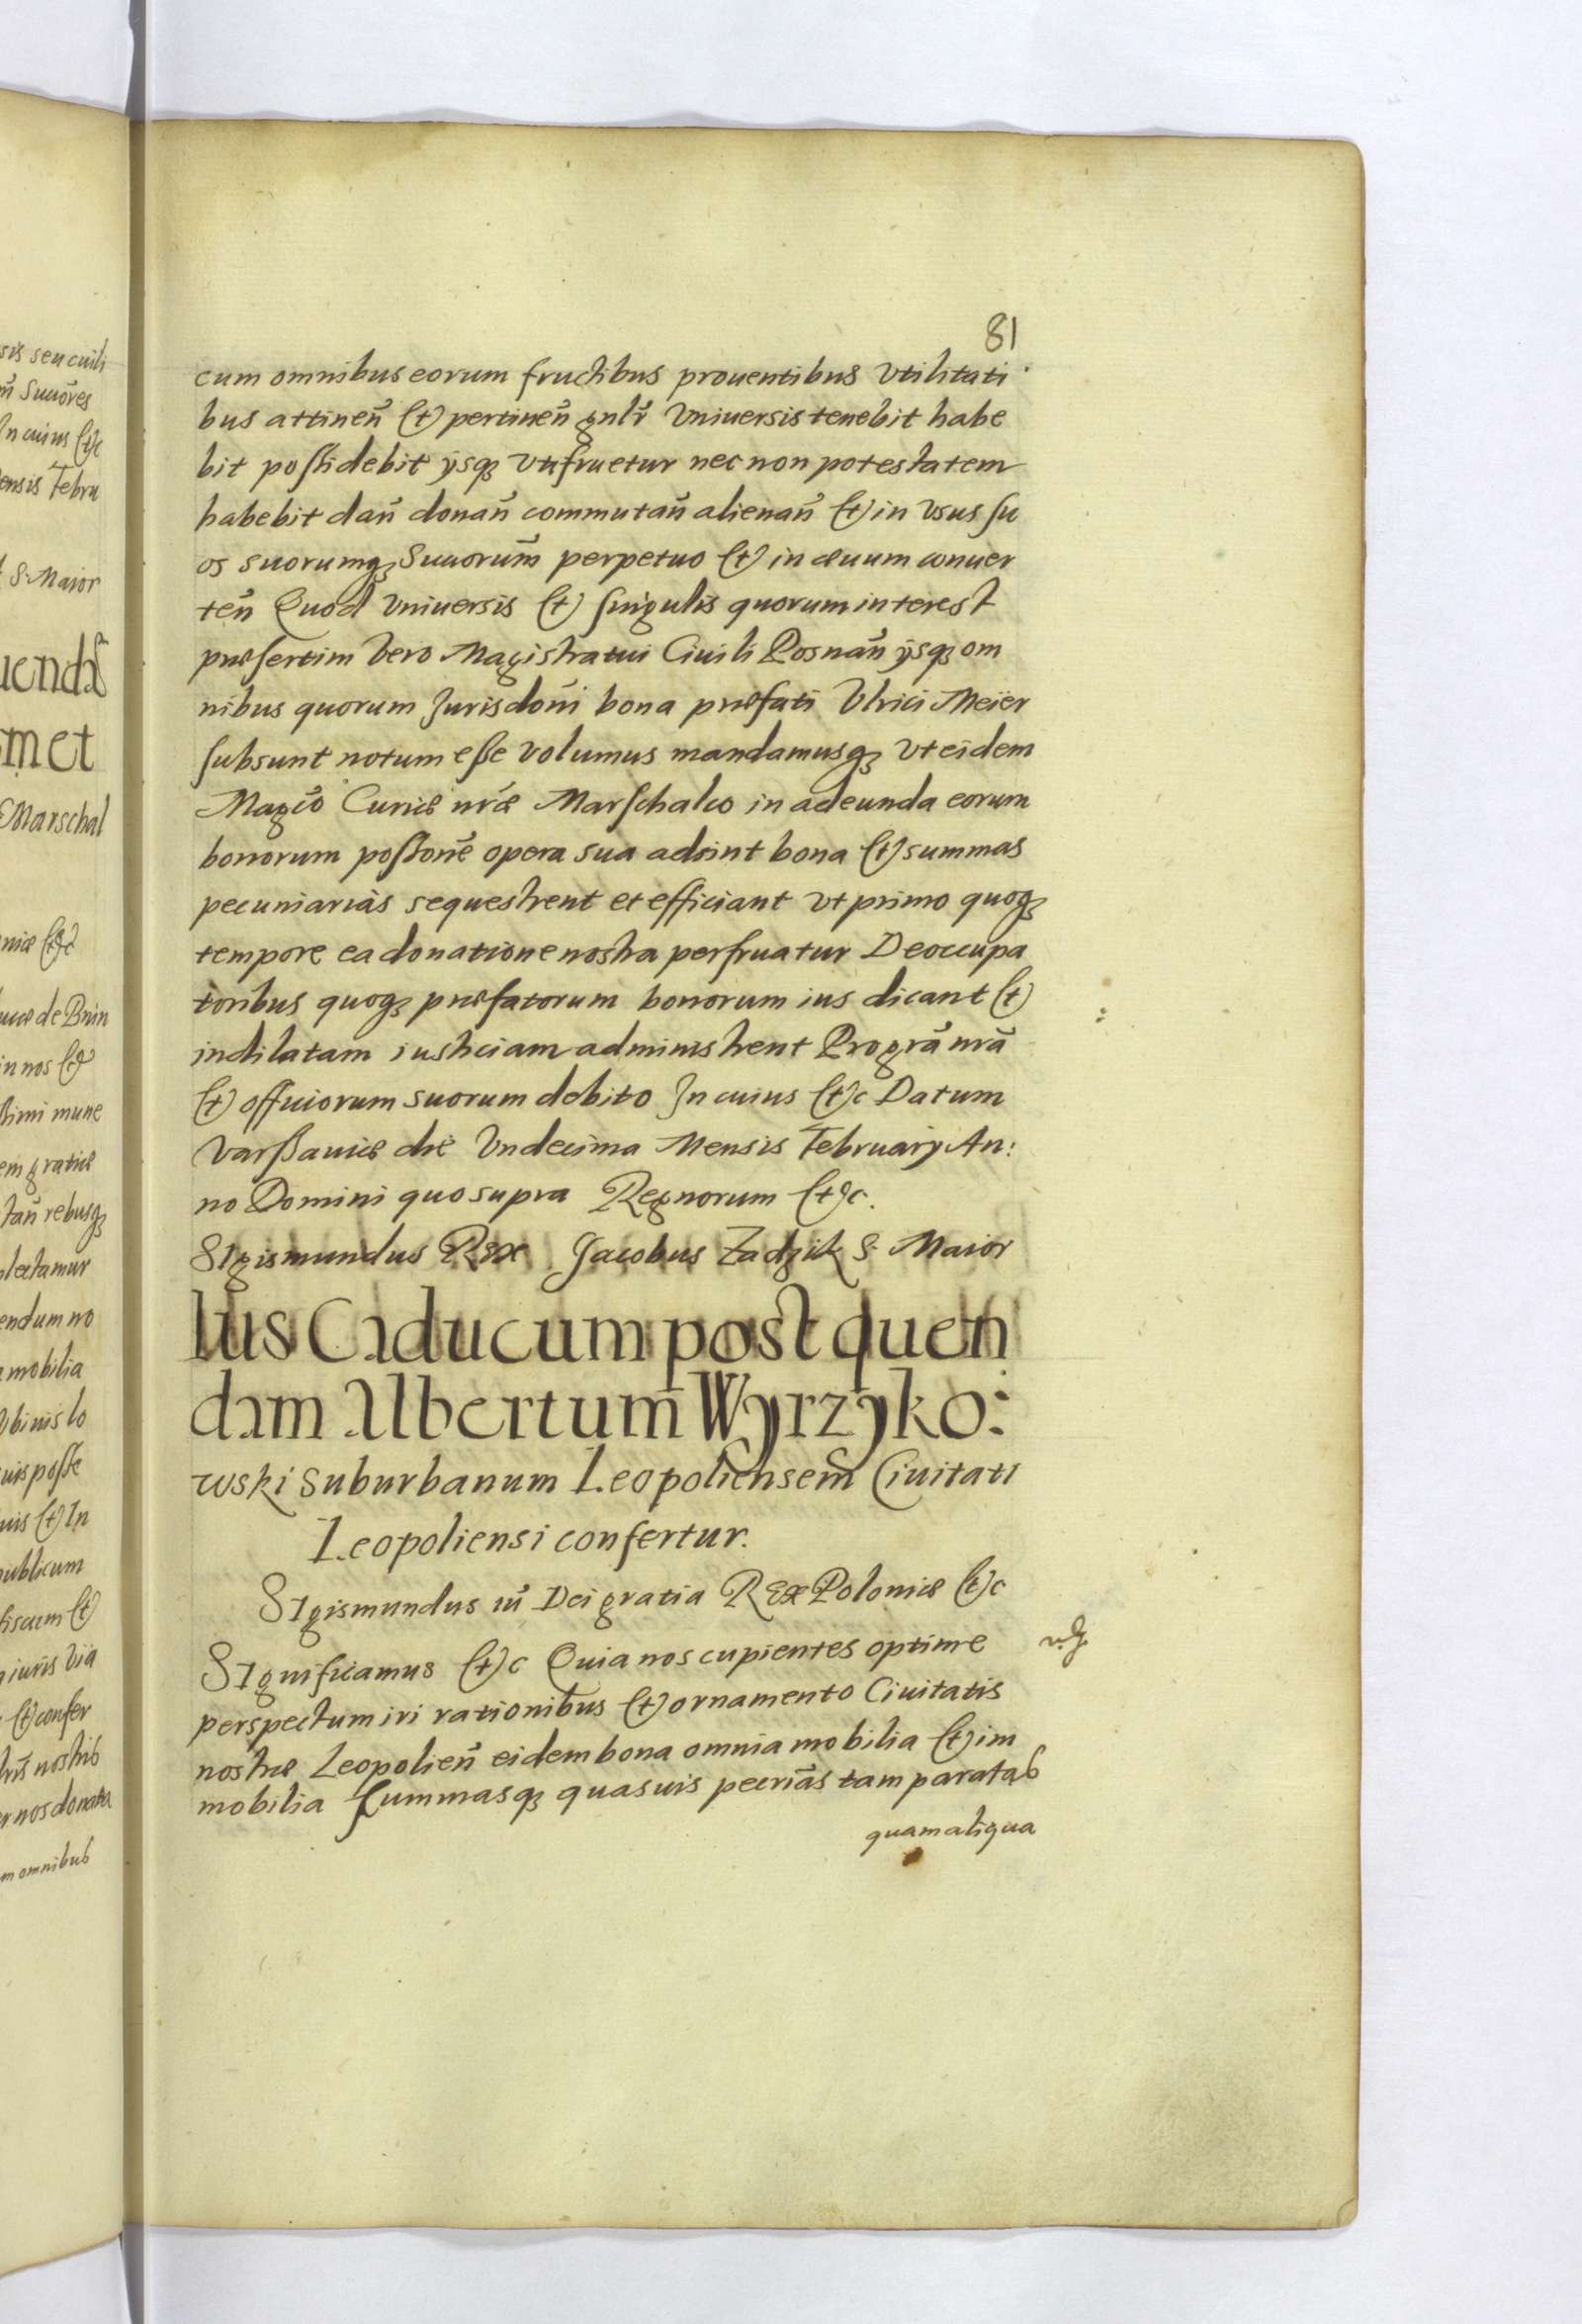 81
cum omnibus eorum fructibus prouentibus Vtilitati
bus attineñ (et) pertineñ gnlr̃ Vniuersis tenebit habe
bit possidebit ijsq₃ Vtifruetur nec non potestatem
habebit dañ donañ commutañ alienañ (et) in Vsus su
os suorumq₃ Succorum̃ perpetuo (et) in æuum conuer
teñ Quod Vniuersis (et) singulis quorum interest
præsertim Vero Magistratui Ciuili Posnañ ijsq₃ om
nibus quorum Jurisdoñi bona præfati Vlrici Meïer
subsunt notum esse Volumus mandamusq₃ Vt eidem
Magc̃o Curiæ nr̃æ Marschalco in adeunda eorum
bonorum possonẽ opera sua adsint bona (et) summas
pecuniarias sequestrent et efficiant Vt primo quoq₃
tempore ea donatione nostra perfruatur De occupa
toribus quoq₃ præfatorum bonorum ius dicant (et)
indilatam iusticiam administrent Pro grã nrã
(et) officiorum suorum debito In cuius (et)c Datum
Varssauiæ die Vndecima Mensis Februarij An:
no Domini quo supra Regnorum (et)c.
SIgismundus REX Jacobus Zadzik S. Maior
Ius Caducum post quen
dam Albertum Wyrzyko:
wski Suburbanum Leopoliensem Ciuitati
Leopoliensi confertur.
SIgismundus iũ Dei gratia REX Poloniæ (et)c
SIgnificamus (et)c Quia nos cupientes optime
perspectum iri rationibus (et) ornamento Ciuitatis
nostræ Leopolieñ eidem bona omnia mobilia (et) im
mobilia summasq₃ quasuis pecriãs tam paratas
quam aliqua